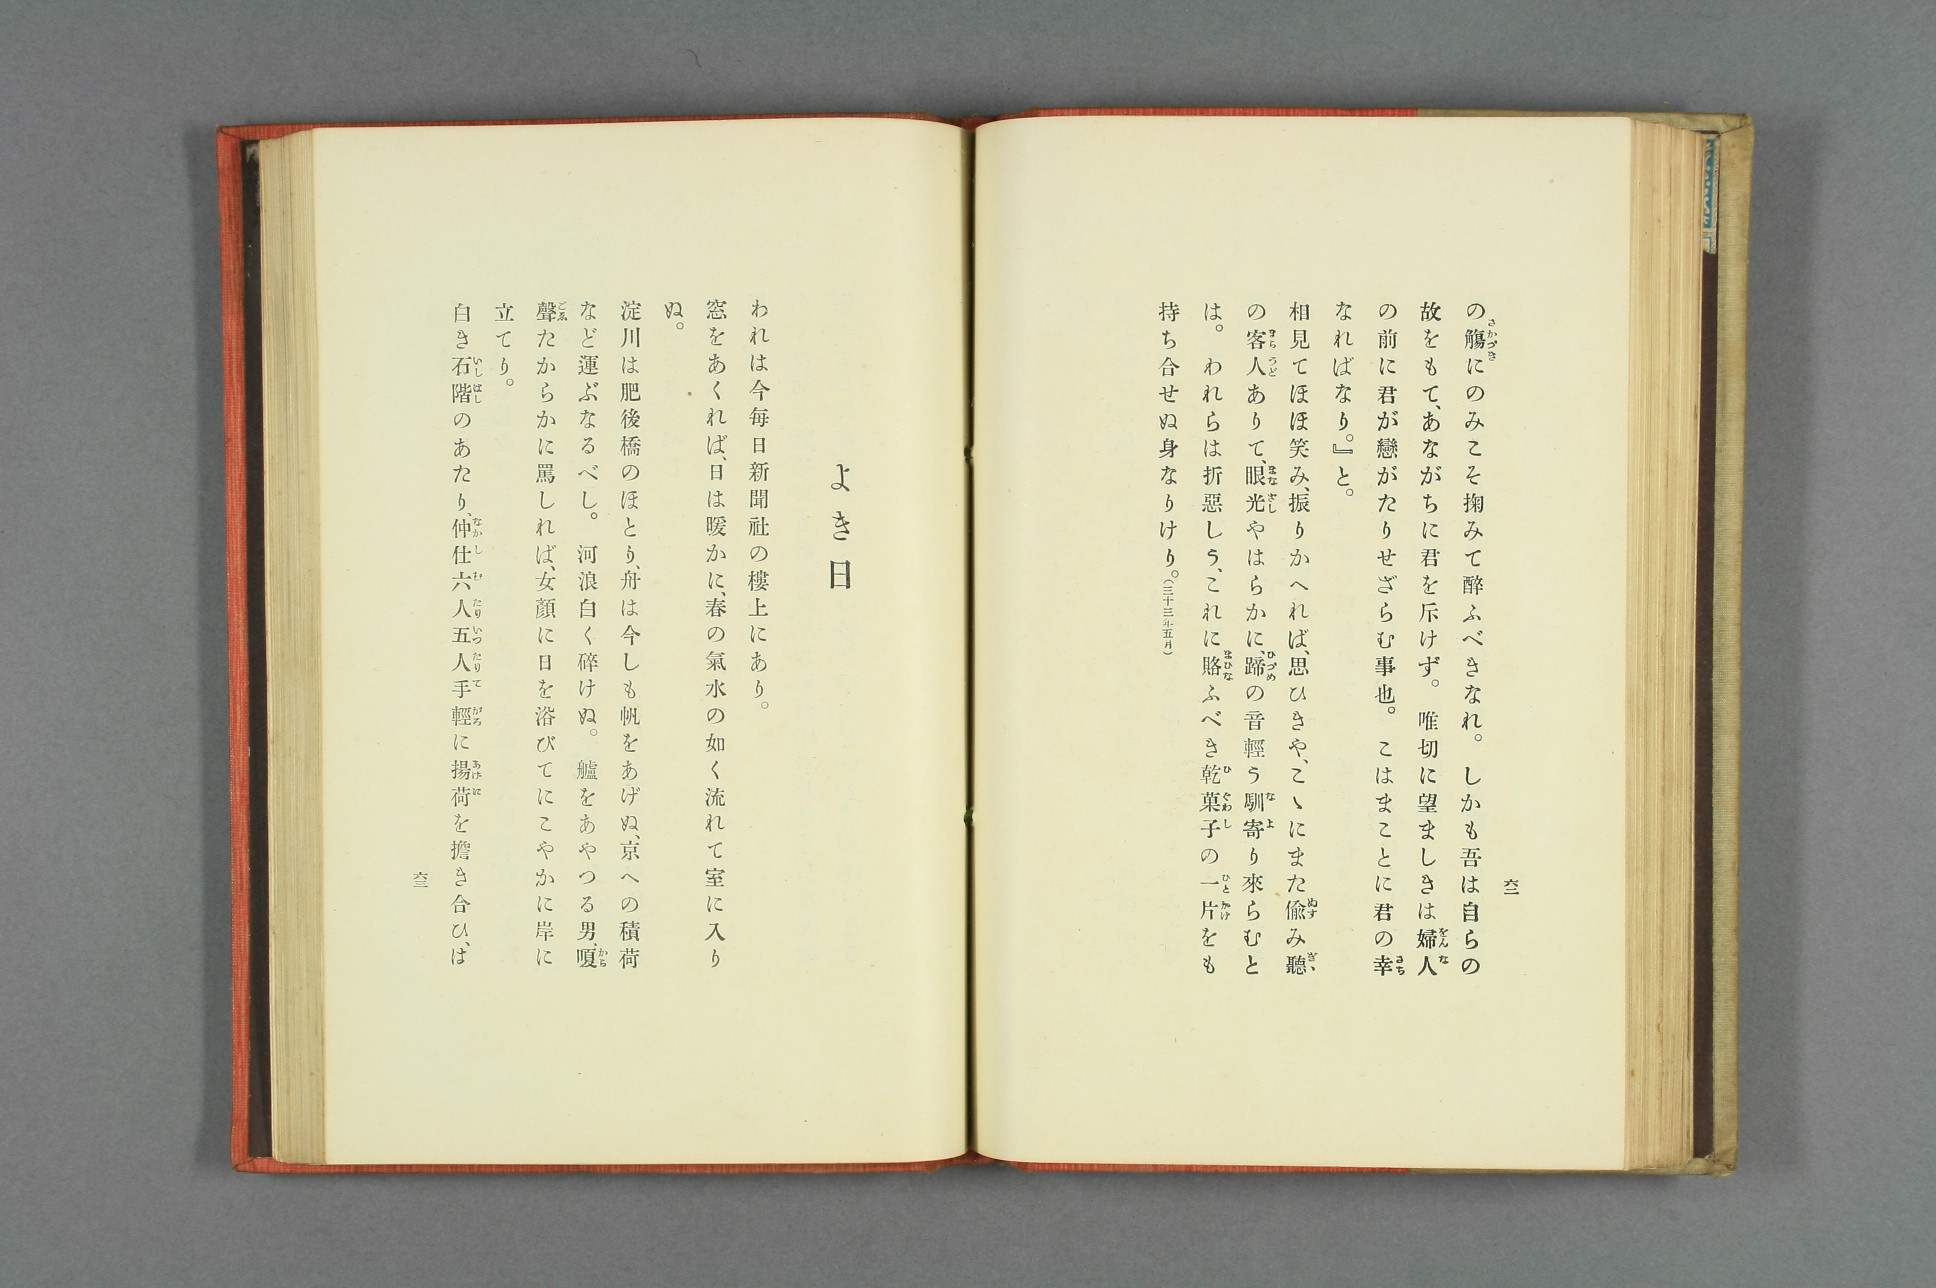 の觴にのみこそ掬みて醉ふべきなれ。しかも吾は自らの
故をもて、あながちに君を斥けず。唯切に望ましきは婦人
の前に君が戀がたりせざらむ事也。こはまことに君の幸
なればなり。』と。
相見てほほ笑み、振りかへれば、思ひきや、こゝにまた偸み聽
の客人ありて、眼光やはらかに、蹄の音輕う馴寄り來らむと
は。われらは折惡しう、これに賂ふべき乾菓子の一片をも
持ち合せぬ身なりけり。(三十三年五月)
六二
よき日
われは今毎日新聞社の樓上にあり。
窓をあくれば、日は暖かに、春の氣水の如く流れて室に入り
ぬ。
淀川は肥後橋のほとり、舟は今しも帆をあげぬ、京への積荷
など運ぶなるべし。河浪白く碎けぬ。艫をあやつる男、嗄
聲たからかに罵しれば、女顔に日を浴びてにこやかに岸に
立てり。
白き石階のあたり、仲仕六人五人手輕に揚荷を擔き合ひ、は
六三